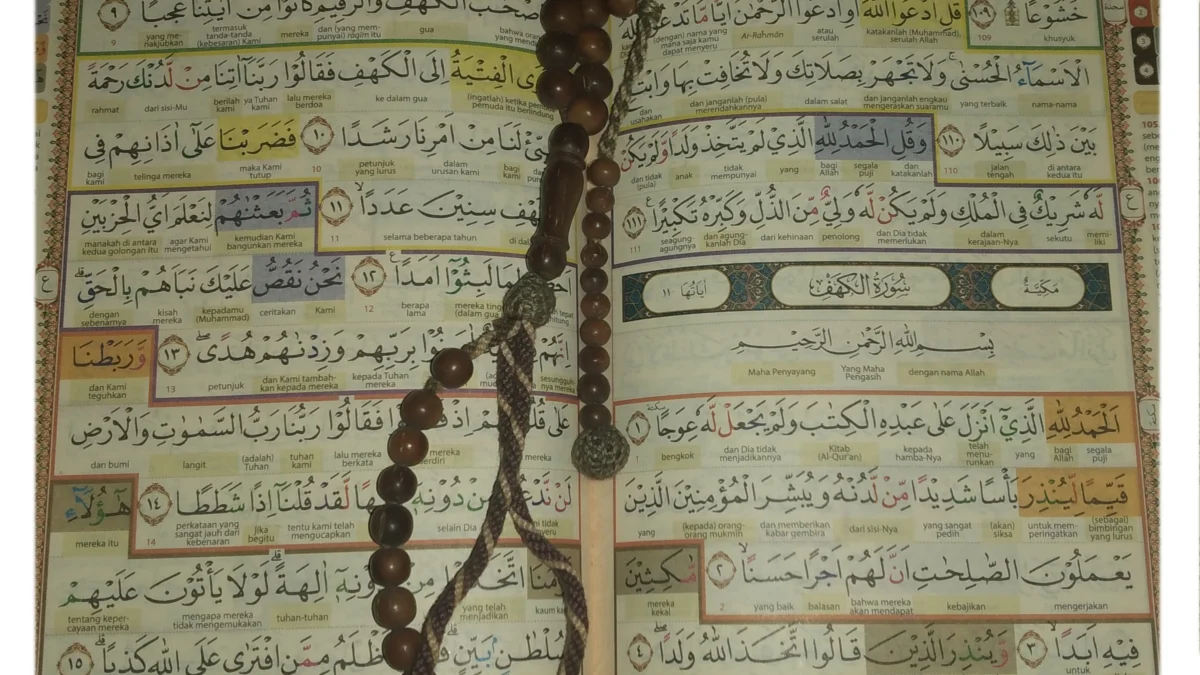 خُشُوْعًا ١٠٩ قُلِ ادْعُوا اللّٰهَ اَوِ ادْعُوا الرَّحْمٰنَ اَيًّا مَّا تَدْعُوْا
khusyuk 109 katakanlah (Muhammad), serulah Allah atau serulah Ar-Rahmān (dengan) nama yang mana saja kamu dapat menyeru
الْاَسْمَاۤءُ الْحُسْنٰى وَلَا تَجْهَرْ بِصَلَاتِكَ وَلَا تُخَافِتْ بِهَا وَابْتَغِ
nama-nama yang terbaik dan janganlah engkau mengeraskan suaramu dalam salat dan janganlah (pula) merendahkannya dan usahakan
بَيْنَ ذٰلِكَ سَبِيْلًا ١١٠ وَقُلِ الْحَمْدُ لِلّٰهِ الَّذِيْ لَمْ يَتَّخِذْ وَلَدًا وَّلَمْ يَكُنْ
di antara kedua itu jalan tengah 110 dan katakanlah segala puji bagi Allah yang tidak mempunyai anak dan tidak (pula)
لَّهٗ شَرِيْكٌ فِى الْمُلْكِ وَلَمْ يَكُنْ لَّهٗ وَلِيٌّ مِّنَ الذُّلِّ وَكَبِّرْهُ تَكْبِيْرًا ١١١
memiliki sekutu dalam kerajaan-Nya dan Dia tidak memerlukan penolong dari kehinaan dan agungkanlah Dia seagung-agungnya 111
مَكِّيَّةٌ سُوْرَةُ الْكَهْفِ اٰيَاتُهَا ١١
بِسْمِ اللّٰهِ الرَّحْمٰنِ الرَّحِيْمِ
dengan nama Allah Yang Maha Pengasih Maha Penyayang
اَلْحَمْدُ لِلّٰهِ الَّذِيْٓ اَنْزَلَ عَلٰى عَبْدِهِ الْكِتٰبَ وَلَمْ يَجْعَلْ لَّهٗ عِوَجًا ١
segala puji bagi Allah yang telah menurunkan kepada hamba-Nya Kitab (Al-Qur'an) dan Dia tidak menjadikannya bengkok 1
قَيِّمًا لِّيُنْذِرَ بَأْسًا شَدِيْدًا مِّنْ لَّدُنْهُ وَيُبَشِّرَ الْمُؤْمِنِيْنَ الَّذِيْنَ
(sebagai) bimbingan yang lurus untuk memperingatkan (akan) siksa yang sangat pedih dari sisi-Nya dan memberikan kabar gembira (kepada) orang-orang mukmin yang
يَعْمَلُوْنَ الصّٰلِحٰتِ اَنَّ لَهُمْ اَجْرًا حَسَنًا ٢ مَّاكِثِيْنَ
mengerjakan kebajikan bahwa mereka akan mendapat balasan yang baik 2 mereka kekal
فِيْهِ اَبَدًا ٣ وَّيُنْذِرَ الَّذِيْنَ قَالُوا اتَّخَذَ اللّٰهُ وَلَدًا ٤
untuk
صْحٰبَ الْكَهْفِ وَالرَّقِيْمِ كَانُوْا مِنْ اٰيٰتِنَا عَجَبًا ٩
bahwa orang yang mendiami gua dan (yang mempunyai) raqim itu mereka termasuk tanda-tanda (kebesaran) Kami yang menakjubkan 9
ى الْفِتْيَةُ اِلَى الْكَهْفِ فَقَالُوْا رَبَّنَآ اٰتِنَا مِنْ لَّدُنْكَ رَحْمَةً
(ingatlah) ketika pemuda-pemuda itu berlindung ke dalam gua lalu mereka berdoa ya Tuhan kami berilah kami dari sisi-Mu rahmat
يِّئْ لَنَا مِنْ اَمْرِنَا رَشَدًا ١٠ فَضَرَبْنَا عَلٰٓى اٰذَانِهِمْ فِى
bagi kami dalam urusan kami petunjuk yang lurus 10 maka Kami tutup telinga mereka bagi kami
هْفِ سِنِيْنَ عَدَدًا ١١ ثُمَّ بَعَثْنٰهُمْ لِنَعْلَمَ اَيُّ الْحِزْبَيْنِ
selama beberapa tahun 11 kemudian Kami bangunkan mereka agar Kami mengetahui manakah di antara kedua golongan itu
اَحْصٰى لِمَا لَبِثُوْٓا اَمَدًا ١٢ نَحْنُ نَقُصُّ عَلَيْكَ نَبَاَهُمْ بِالْحَقِّ
mereka tinggal (dalam gua) berapa lama 12 Kami ceritakan kepadamu (Muhammad) kisah mereka dengan sebenarnya
اِنَّهُمْ نُوْا بِرَبِّهِمْ وَزِدْنٰهُمْ هُدًى ١٣ وَّرَبَطْنَا
sesungguhnya mereka kepada Tuhan mereka dan Kami tambahkan kepada mereka petunjuk 13 dan Kami teguhkan
عَلٰى قُلُ اِذْ فَقَالُوْا رَبُّنَا رَبُّ السَّمٰوٰتِ وَالْاَرْضِ
mereka berdiri lalu mereka berkata tuhan kami (adalah) Tuhan langit dan bumi
لَنْ نَّدْعُ مِنْ دُوْنِهٖٓ هًا لَّقَدْ قُلْنَآ اِذًا شَطَطًا ١٤ هٰٓؤُلَاۤءِ
selain Dia tentu kami telah mengucapkan jika begitu perkataan yang sangat jauh dari kebenaran 14 mereka itu
مُنَا اتَّخَ مِنْ وْنِهٖٓ اٰلِهَةً لَوْلَا يَأْتُوْنَ عَلَيْهِمْ
kaum yang telah menjadikan tuhan-tuhan mengapa mereka tidak mengemukakan tentang kepercayaan mereka
سُلْطٰنٍ بَيِّنٍ ظْلَمُ مِمَّنِ افْتَرٰى عَلَى اللّٰهِ كَذِبًا ١٥